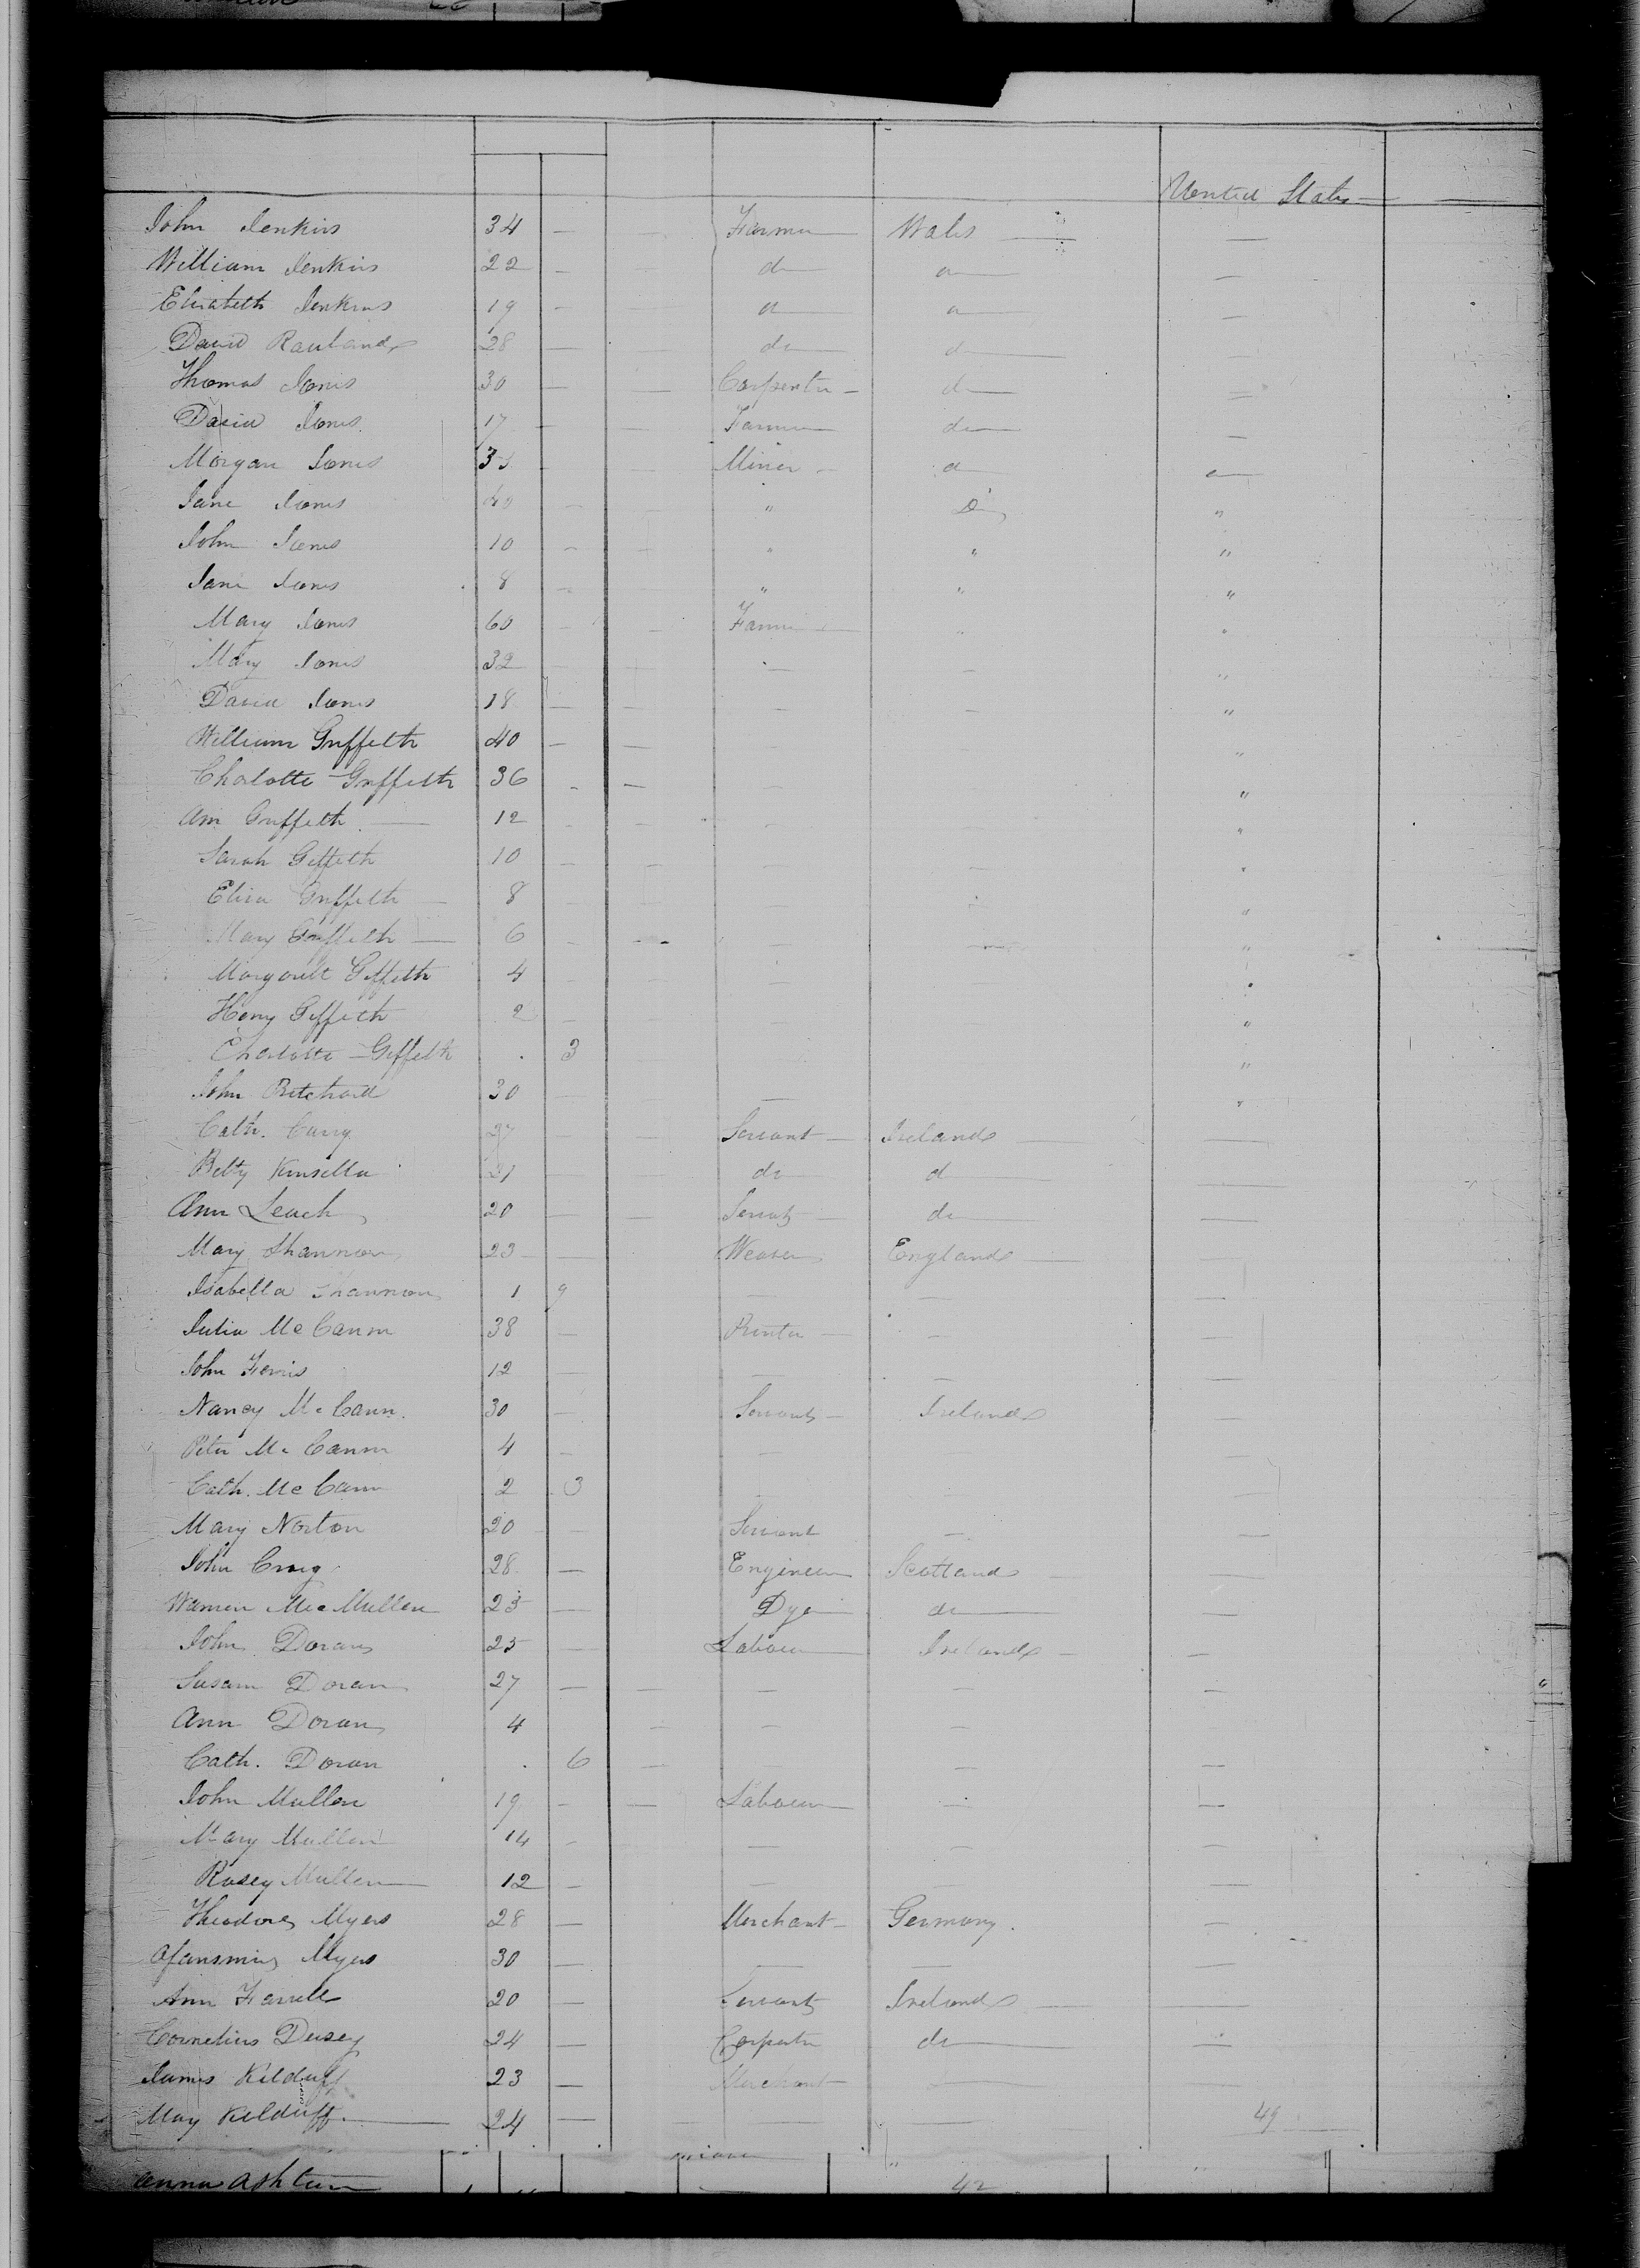 United States
John Jenkins 34 — — Farmer Wales —
William Jenkins 22 — — do do —
Elizabeth Jenkins 19 — do do —
David Raulands 28 — do do —
Thomas Jones 30 — — Carpenter do —
David Jones 17 — — Farmer do —
Morgan Jones 35 — Miner do —
Jane Jones 40 — — " Do "
John Jones 10 — — " " "
Jane Jones 8 — — " " "
Mary Jones 60 — — Farmer " "
Mary Jones 32 — — — — "
David Jones 18 — — — — "
William Griffeth 40 — — "
Chalotte Griffeth 36 — — — "
Ann Griffeth 12 — — — "
Sarah Giffeth 10 — — — — "
Eliza Griffeth 8 — "
Mary Griffeth 6 — — — — "
Margarett Giffeth 4 — — — — "
Heny Giffeth 2 — — "
Chalotte Giffeth . 3 "
John Pritchard 30 — — "
Cath. Curry 27 — — Servant Ireland —
Betty Kinsella 21 — — do do —
Ann Leach 20 — — Servant do —
Mary Shannon 23 — Weaver England —
Isabella Shannon 1 9 — — —
Julia McCann 38 — — — —
John Ferris 12 — — — —
Nancy McCann 30 — Servant Ireland —
Peter McCann 4 — — —
Cath. McCann 2 3 — — —
Mary Norton 20 — Servant — —
John Craig 28 — Engineer Scotland —
McMullen 25 — Dyer do —
John Doran 25 — Labour Ireland —
Susann Doran 27 — — — — —
Ann Doran 4 — — —
Cath. Doran . 6 — — — —
John Mullen 19 — — Labour — —
Mary Mullen 14 — — — —
Rosey Mullen 12 — — — —
Theodore Myers 28 — Merchant Germany. —
Myers 30 — — — —
Ann Farrell 20 — Servant Ireland —
Cornelius Dusey 24 — Carpenter do —
James Kilduff 23 — Merchant — —
May Kilduff. 24 — — — — 49
Anna Ashton 42